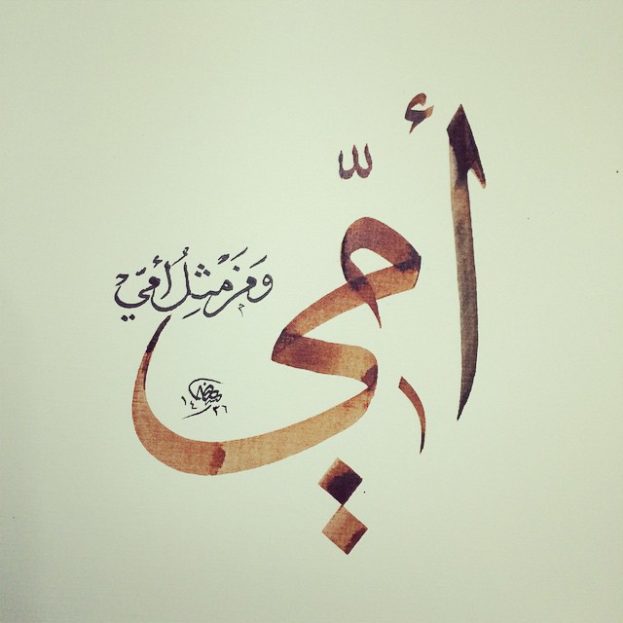 أمِّي
وَمَن مْثِلُ أمّي
١٤٣٦